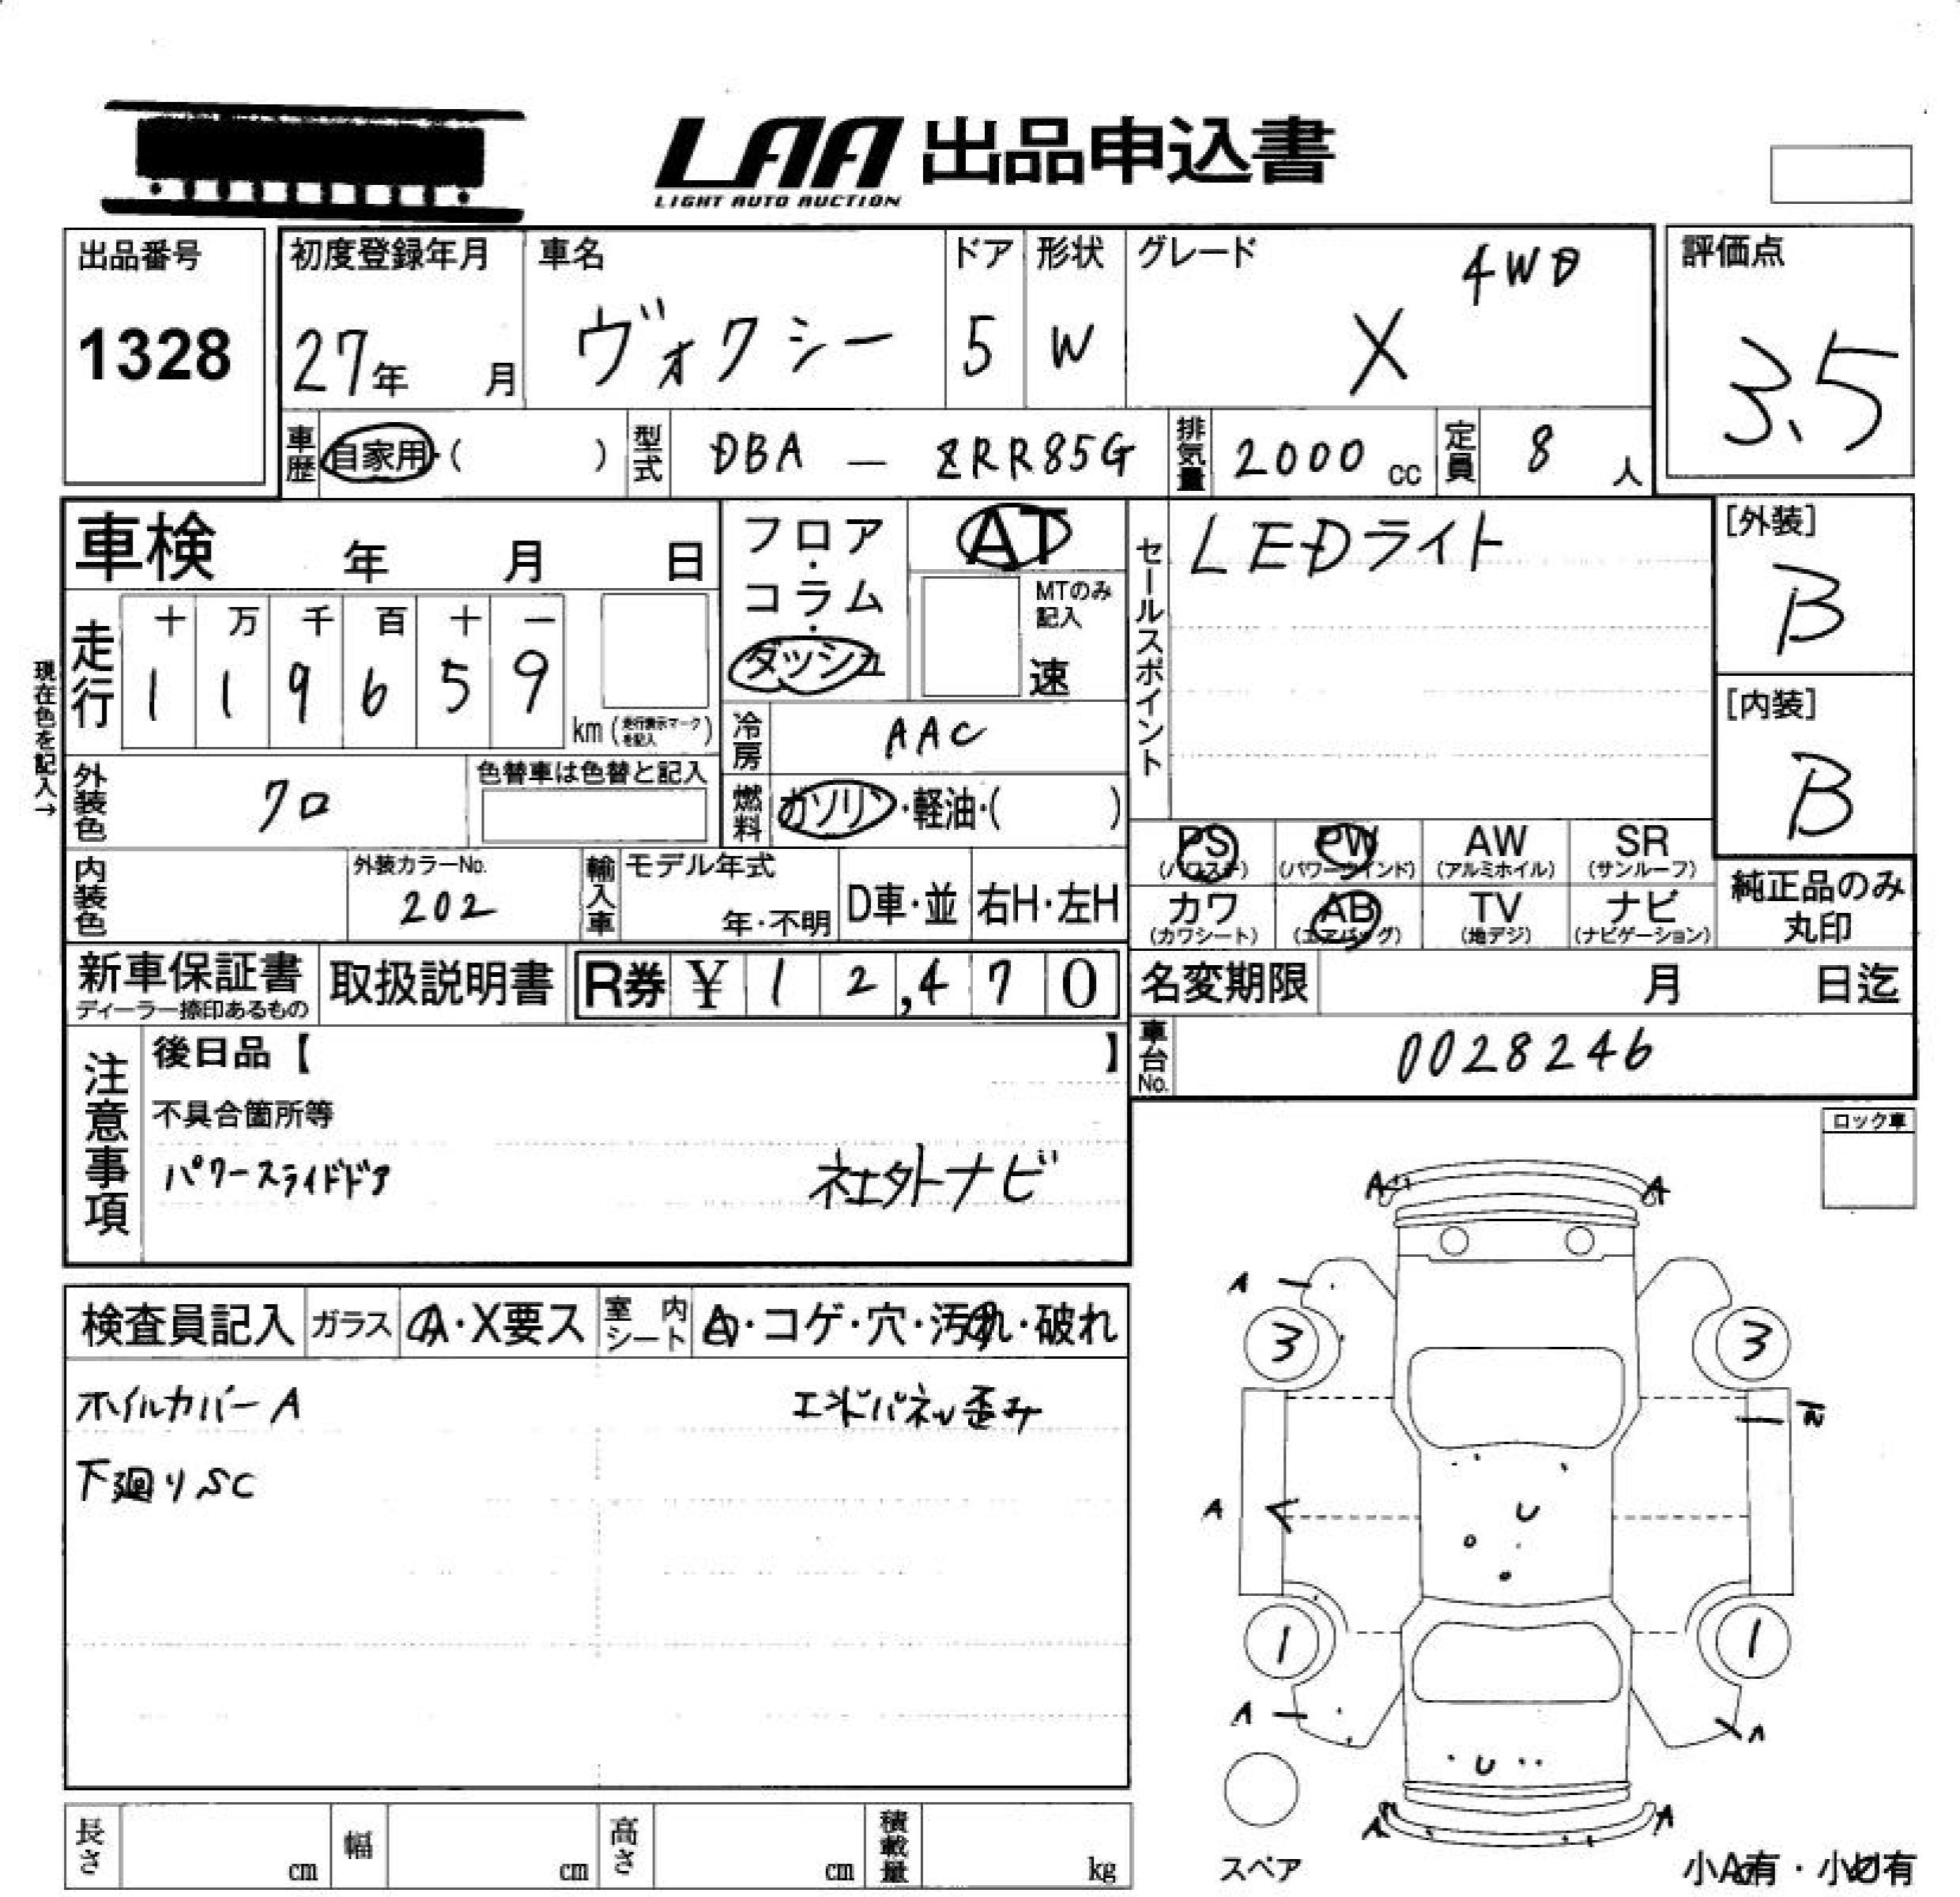 LAA 出品申込書
LIGHT AUTO AUCTION
出品番号
1328
初度登録年月
27年 月
車名
ヴォクシー
ドア
5
形状
W
グレード
4WD
X
評価点
3.5
車歴
自家用・( )
型式
DBA — ZRR85G
排気量
2000 cc
定員
8 人
車検 年 月 日
現在色を記入→
走行
十 万 千 百 十 一
1 1 9 6 5 9
km (走行表示マークを記入)
フロア・コラム・ダッシュ
AT
MTのみ
記入
速
冷房
AAC
燃料
ガソリン・軽油・( )
セールスポイント
LEDライト
[外装]
B
[内装]
B
外装色
クロ
色替車は色替と記入
内装色
外装カラーNo.
202
輸入車
モデル年式
年・不明
D車・並
右H・左H
PS
(パワステ)
PW
(パワーウインド)
AW
(アルミホイル)
SR
(サンルーフ)
カワ
(カワシート)
AB
(エアバッグ)
TV
(地デジ)
ナビ
(ナビゲーション)
純正品のみ
丸印
新車保証書
ディーラー捺印あるもの
取扱説明書
R券 ¥ 1 2,4 7 0
名変期限 月 日迄
車台No.
0028246
注意事項
後日品【 】
不具合箇所等
パワースライドドア
社外ナビ
ロック車
検査員記入
ガラス
A・X要ス
室内
シート
・コゲ・穴・汚れ・破れ
ホイルカバーA
エンドパネル歪み
下廻りSC
A A
A
3 3
A
U
1 1
A A
U
A A
スペア
小A有・小U有
長さ cm
幅 cm
高さ cm
積載量 kg